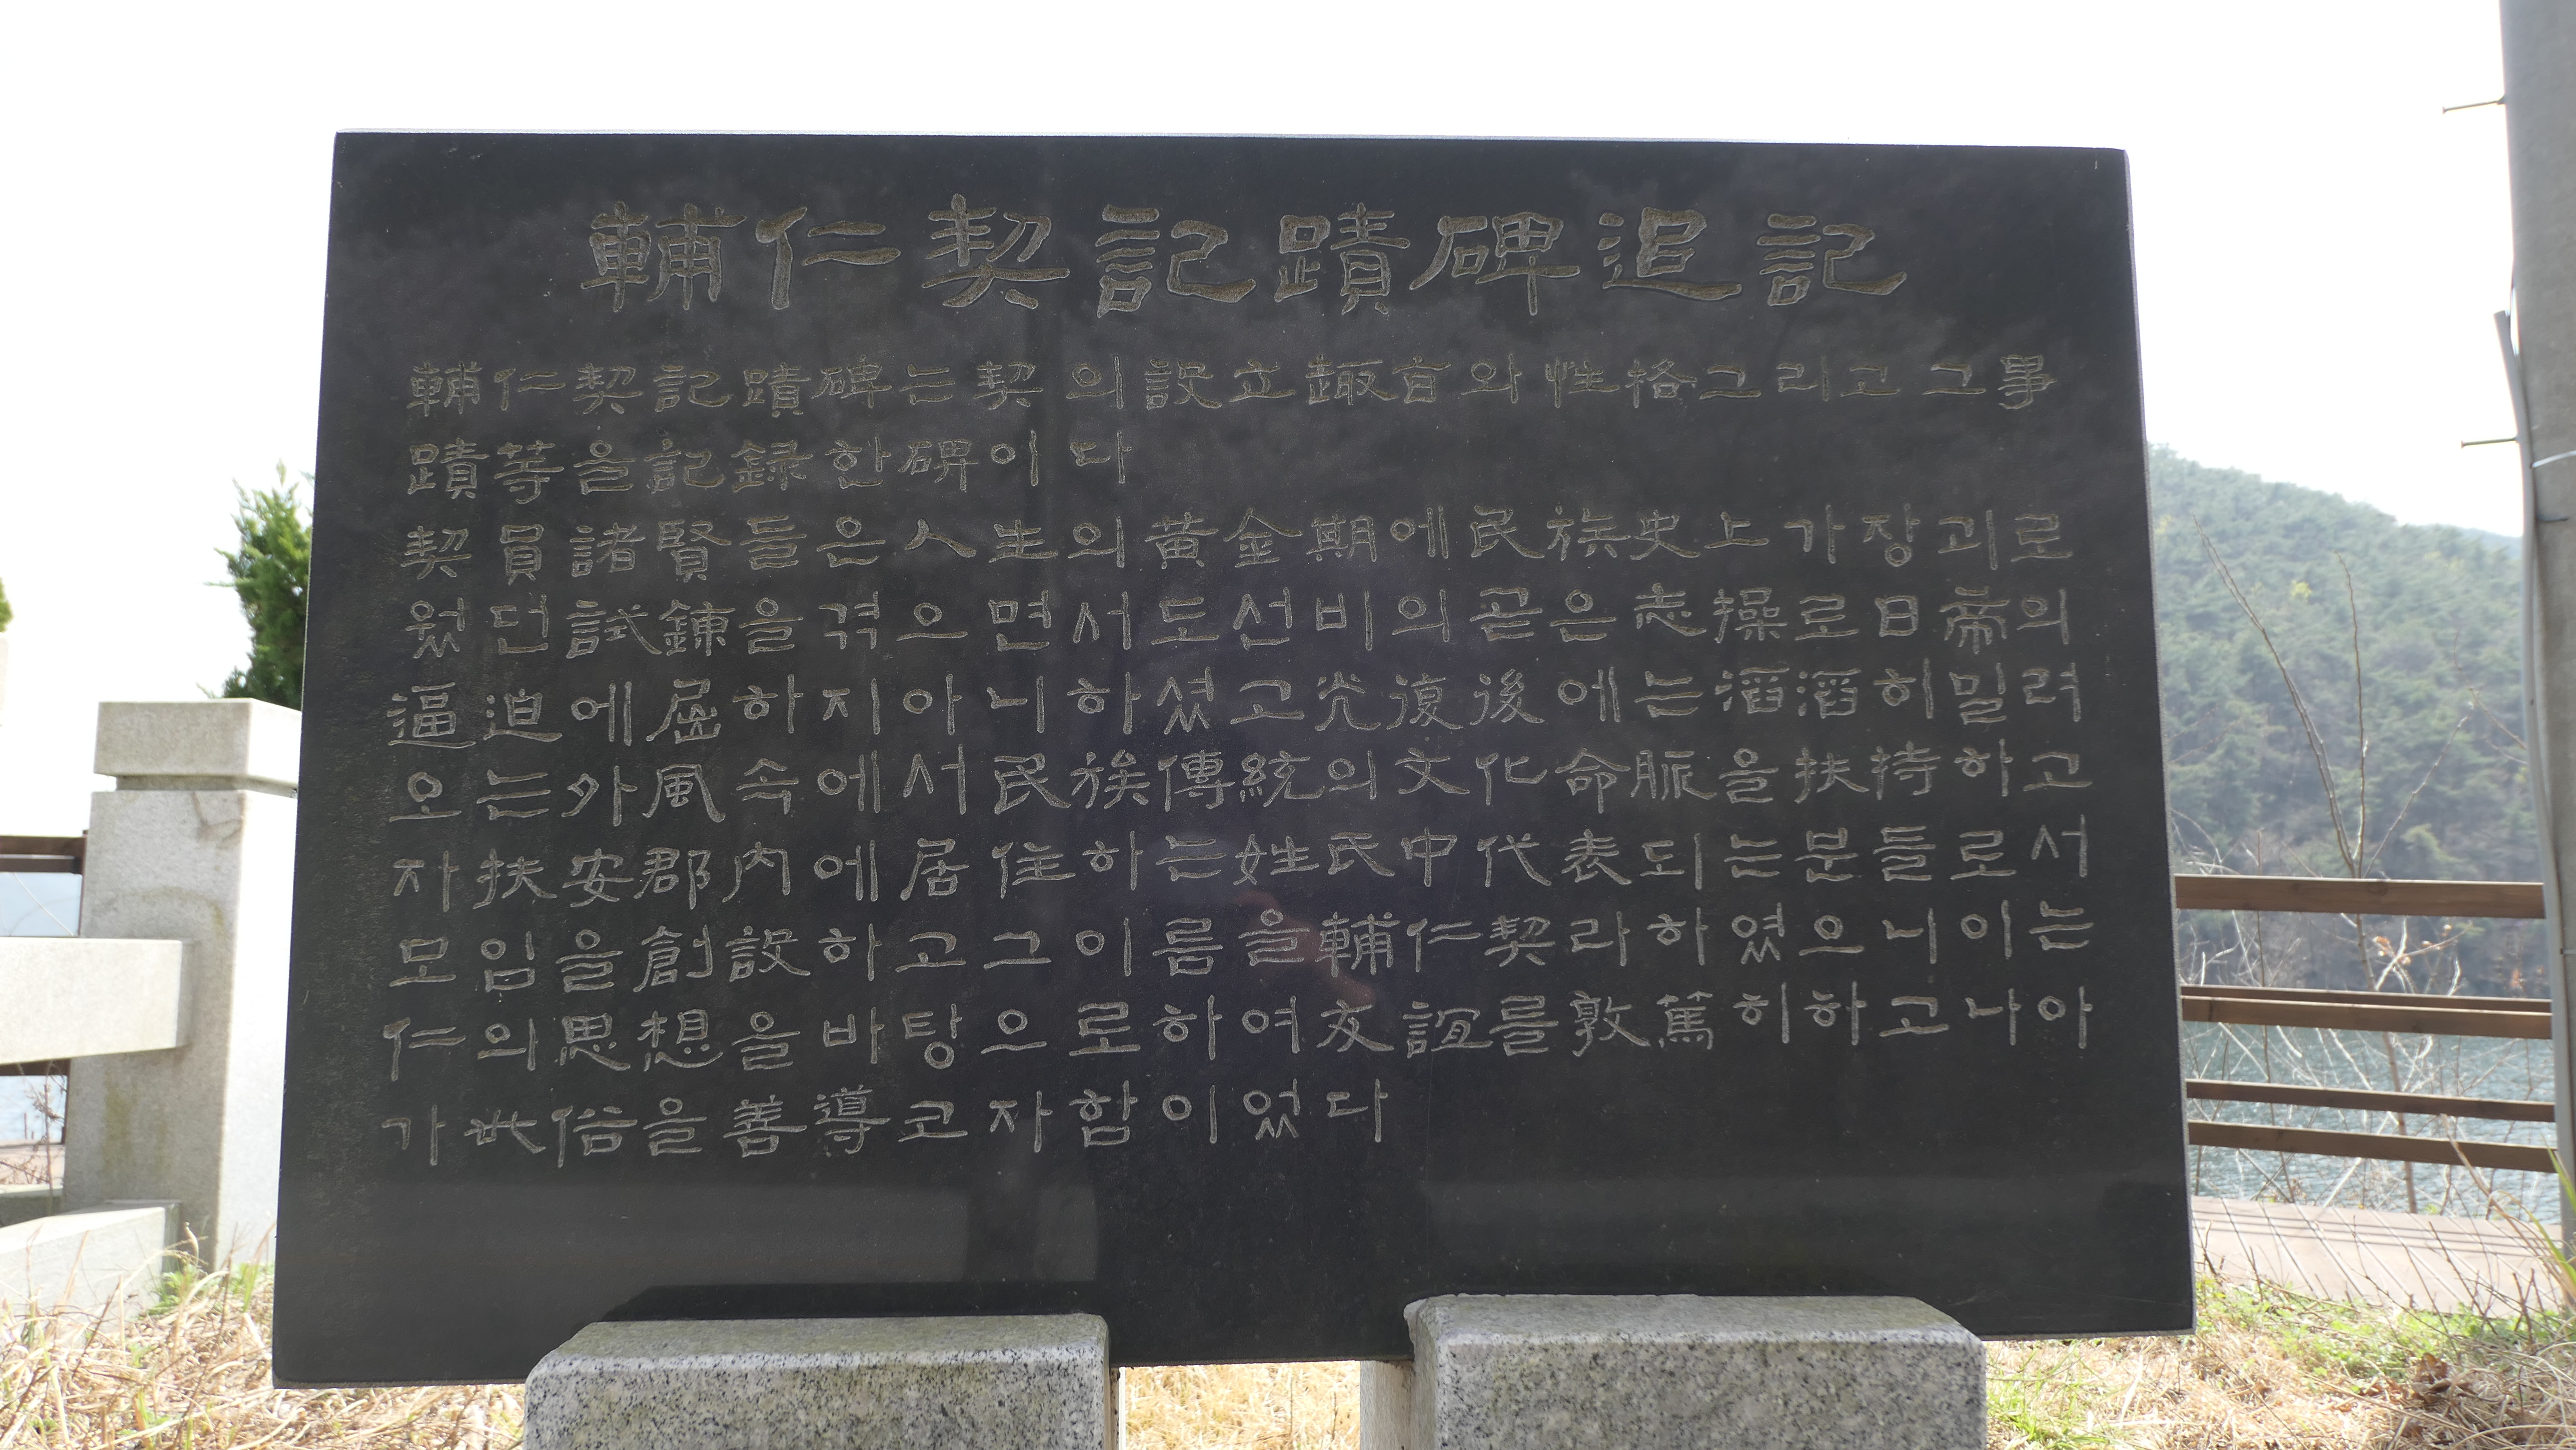 輔仁契記蹟碑追記
輔仁契記蹟碑는契의設立趣旨와性格그리고그事
蹟等을記録한碑이다
契員諸賢들은人生의黄金期에民族史上가장괴로
웠던試鍊을겪으면서도선비의곧은志操로日帝의
逼迫에屈하지아니하셨고光復後에는滔滔히밀려
오는外風속에서民族傳統의文化命脈을扶持하고
자扶安郡内에居住하는姓氏中代表되는분들로서
모임을創設하고그이름을輔仁契라하였으니이는
仁의思想을바탕으로하여友誼를敦篤히하고나아
가世俗을善導코자함이었다